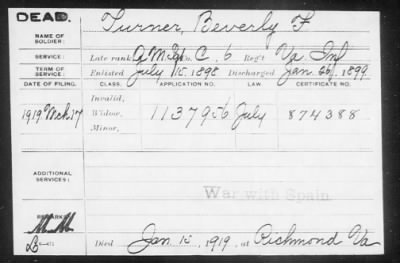 DEAD.
NAME OF SOLDIER: Turner, Beverly F
SERVICE: Late rank Co. C, 6 Reg't Va. Inf
TERM OF SERVICE: Enlisted July 15, 1898 Discharged Jan 26, 1899.
DATE OF FILING. CLASS. APPLICATION NO. LAW. CERTIFICATE NO.
Invalid,
1919 Mch 17 Widow, 1137956 July 874388
Minor,
ADDITIONAL SERVICES:
War with Spain
REMARKS:
Died Jan. 15, 1919, at Richmond Va